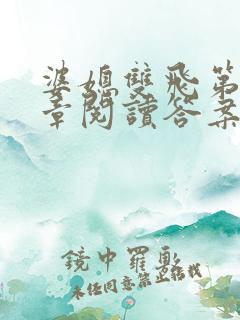 婆媳雙飛第
章閱讀答案
鏡中羅影
未経同意禁止转载